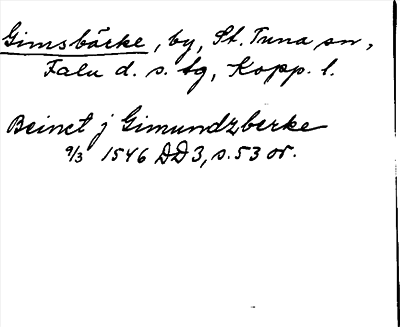 Gimsbäcke, by, St. Tuna sn,
Falu d. s. tg, Kopp. l.
Beinct j Gimundzberke
9/3 1546 DD3, s. 53 or.